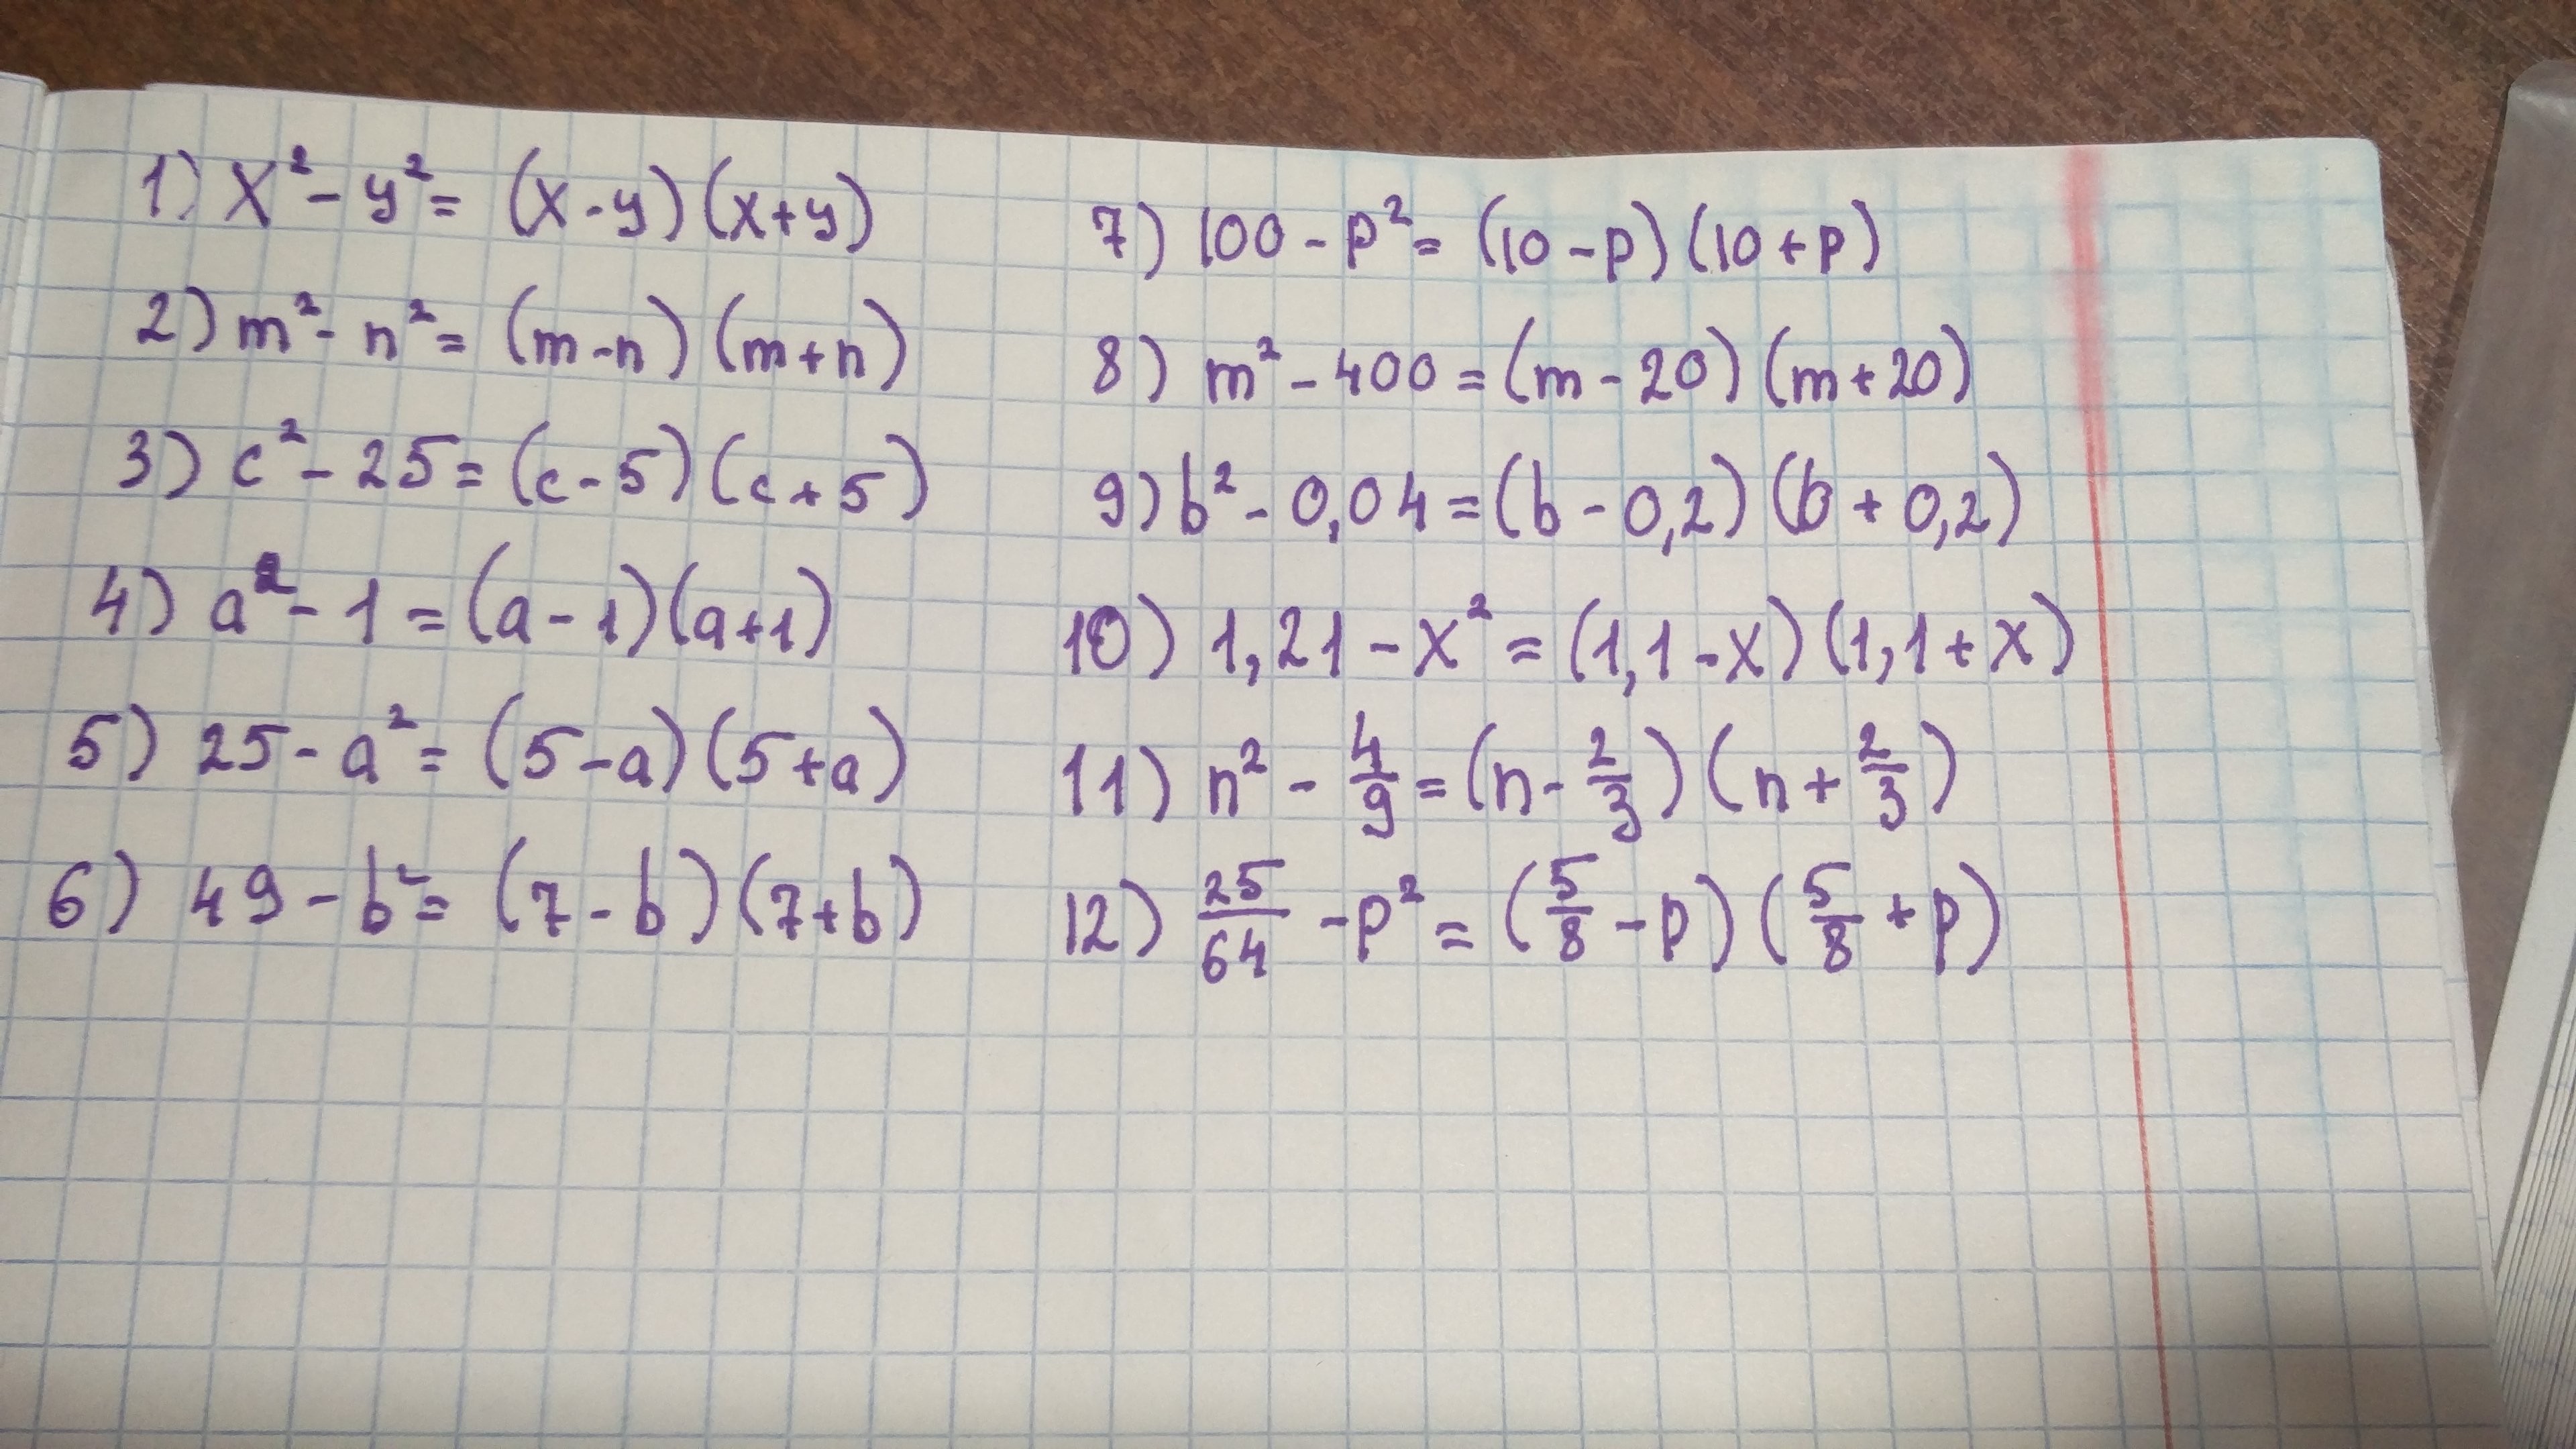 1) x² - y² = (x - y) (x + y)
2) m² - n² = (m - n) (m + n)
3) c² - 25 = (c - 5) (c + 5)
4) a² - 1 = (a - 1) (a + 1)
5) 25 - a² = (5 - a) (5 + a)
6) 49 - b² = (7 - b) (7 + b)
7) 100 - p² = (10 - p) (10 + p)
8) m² - 400 = (m - 20) (m + 20)
9) b² - 0,04 = (b - 0,2) (b + 0,2)
10) 1,21 - x² = (1,1 - x) (1,1 + x)
11) n² - 4/9 = (n - 2/3) (n + 2/3)
12) 25/64 - p² = (5/8 - p) (5/8 + p)